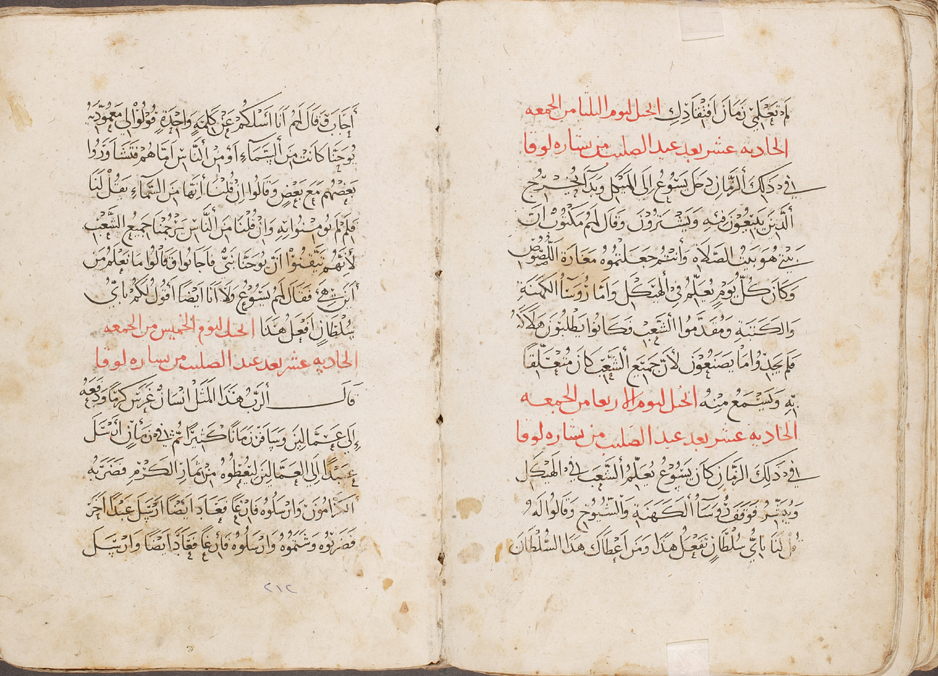 لم تعلمي زمان افتقادك الانجيل ليوم الثلثا من الجمعه
الحاديه عشر بعد عيد الصليب من بشاره لوقا
في ذلك الزمان دخل يسوع الى الهيكل وبدا يخرج
الذين يبيعون فيه ويشترون وقال لهم مكتوب ان
بيتي هو بيت الصلاه وأنتم جعلتموه مغارة اللصوص
وكان كل يوم يعلم في الهيكل وأما رؤسا الكهنة
والكتبة ومقدموا الشعب فكانوا يطلبون هلاكه
فلم يجدوا ما يصنعون لأن جميع الشعب كان متعلقا
به ويسمع منه الانجيل ليوم الاربعا من الجمعه
الحاديه عشر بعد عيد الصليب من بشاره لوقا
في ذلك الزمان كان يسوع يعلم الشعب في الهيكل
ويبشر فوقف رؤسآ الكهنة والشيوخ وقالوا له
قل لنا باي سلطان تفعل هذا ومن اعطاك هذا السلطان
أجاب وقال لهم انا اسلكم عن كلمة واحدة قولوا لي معمودية
يوحنا كانت من السمآء أو من الناس اما هم فتشاوروا
بعضهم مع بعض وقالوا ان قلنا أنها من السمآء يقل لنا
فلم لم تومنوا به وان قلنا من الناس يرجمنا جميع الشعب
لأنهم تيقنوا ان يوحنا نبي فاجابوا وقالوا ما نعلم من
أين هي فقال لهم يسوع ولا انا ايضا أقول لكم باي
سلطان افعل هذا الانجيل ليوم الخميس من الجمعه
الحاديه عشر بعد عيد الصليب من بشاره لوقا
قال الرب هذا المثل انسان غرس كرما ودفعه
إلى عمالين وسافر زمانا كثيرا ثم في زمان ارسل
عبدا الي العمالين ليعطوه من ثمار الكرم فضربه
الكرامون وارسلوه فارغا فعاد ايضا ارسل عبدا آخر
فضربوه وشتموه وارسلوه فارغا فعاد ايضا وارسل
٢١٢